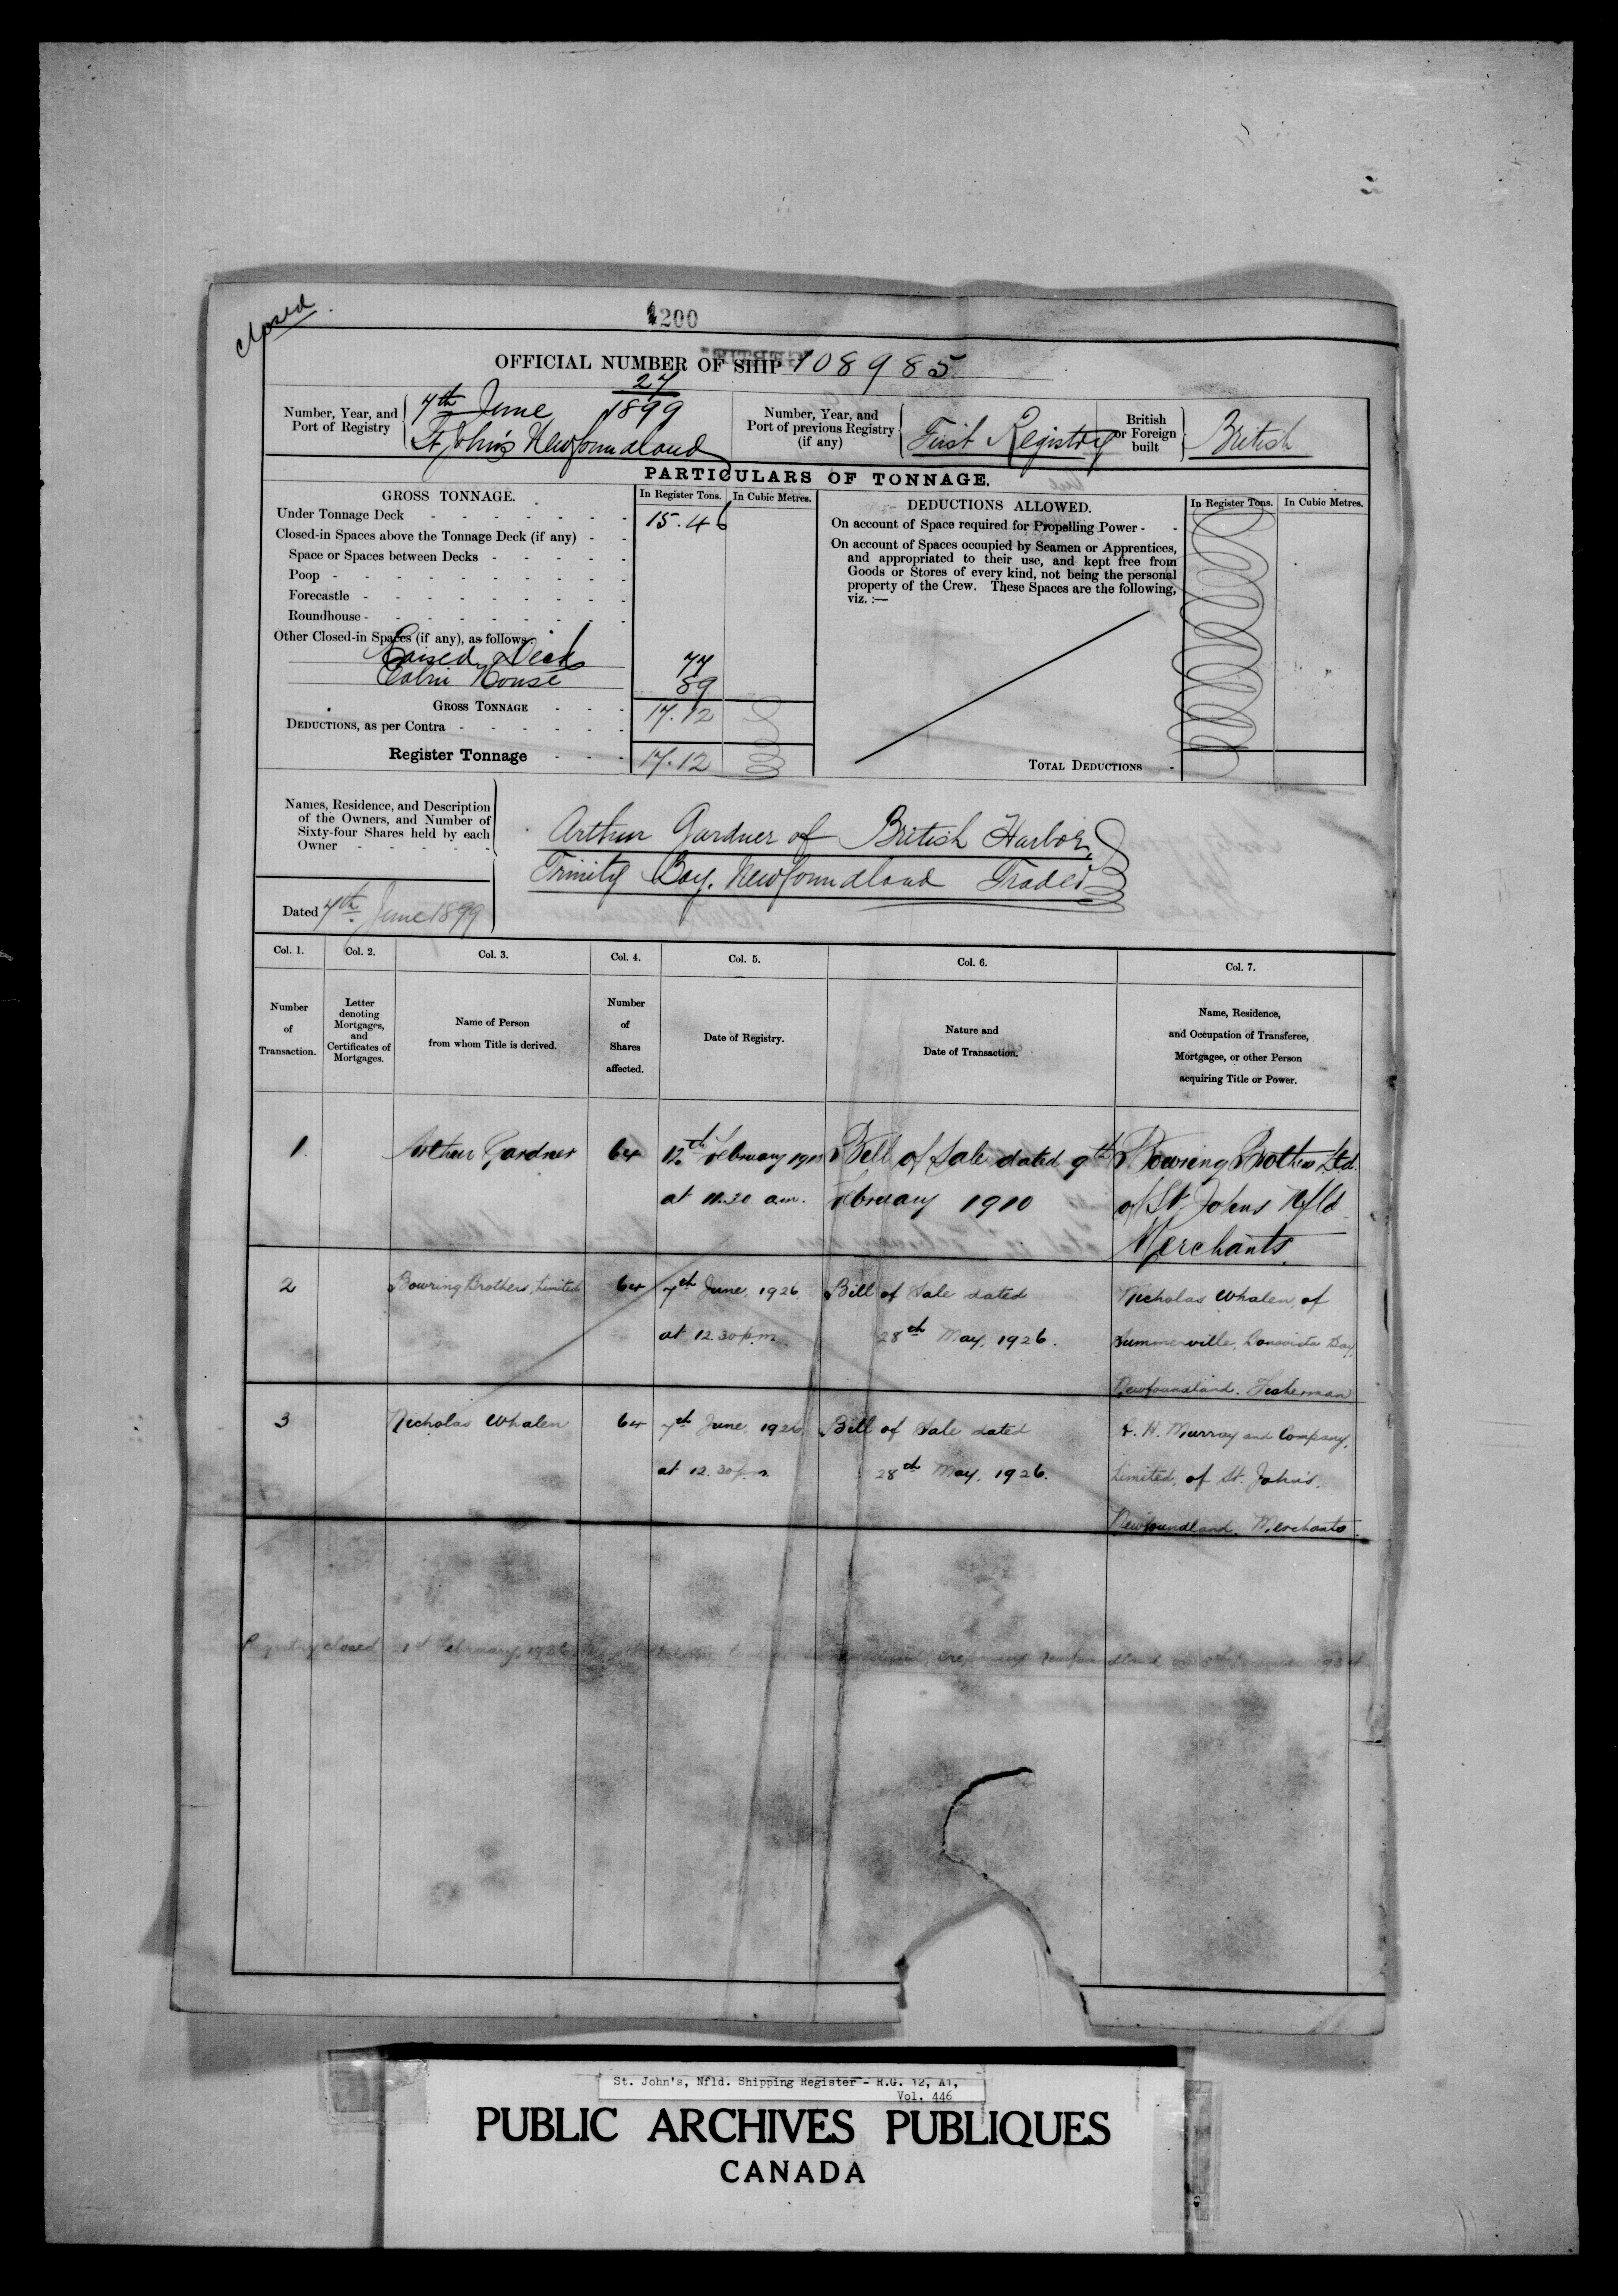 closed.
200
OFFICIAL NUMBER OF SHIP 108985
Number, Year, and Port of Registry
27
7th June 1899
St John's Newfoundland
Number, Year, and Port of previous Registry (if any)
First Registry
British or Foreign built
British
PARTICULARS OF TONNAGE.
GROSS TONNAGE.
In Register Tons. In Cubic Metres.
DEDUCTIONS ALLOWED.
In Register Tons. In Cubic Metres.
Under Tonnage Deck 15.46
Closed-in Spaces above the Tonnage Deck (if any)
Space or Spaces between Decks
Poop
Forecastle
Roundhouse
Other Closed-in Spaces (if any), as follows:
Raised Deck 77
Cabin House 89
GROSS TONNAGE 17.12
DEDUCTIONS, as per Contra
Register Tonnage 17.12
On account of Space required for Propelling Power
On account of Spaces occupied by Seamen or Apprentices,
and appropriated to their use, and kept free from
Goods or Stores of every kind, not being the personal
property of the Crew. These Spaces are the following,
viz. :—
TOTAL DEDUCTIONS
Names, Residence, and Description
of the Owners, and Number of
Sixty-four Shares held by each
Owner
Arthur Gardner of British Harbor,
Trinity Bay. Newfoundland Trader
Dated 7th June 1899
Col. 1. Col. 2. Col. 3. Col. 4. Col. 5. Col. 6. Col. 7.
Number of Transaction.
Letter denoting Mortgages, and Certificates of Mortgages.
Name of Person from whom Title is derived.
Number of Shares affected.
Date of Registry.
Nature and Date of Transaction.
Name, Residence, and Occupation of Transferee, Mortgagee, or other Person acquiring Title or Power.
1. Arthur Gardner 64 12th February 1910 Bill of Sale dated 9th Bowring Brothers Ltd.
at 11.30 a.m. February 1910 of St Johns Nfld
Merchants.
2 Bowring Brothers, Limited 64 7th June, 1926 Bill of Sale dated Nicholas Whalen, of
at 12.30 p.m. 28th May, 1926. Summerville, Bonavista Bay,
Newfoundland. Fisherman
3 Nicholas Whalen 64 7th June, 1926 Bill of Sale dated A. H. Murray and Company,
at 12.30 p.m. 28th May, 1926. Limited, of St. John's.
Newfoundland. Merchants.
Registry closed 21st February, 1936
St. John's, Nfld. Shipping Register - R.G. 12, A1,
Vol. 446
PUBLIC ARCHIVES PUBLIQUES
CANADA